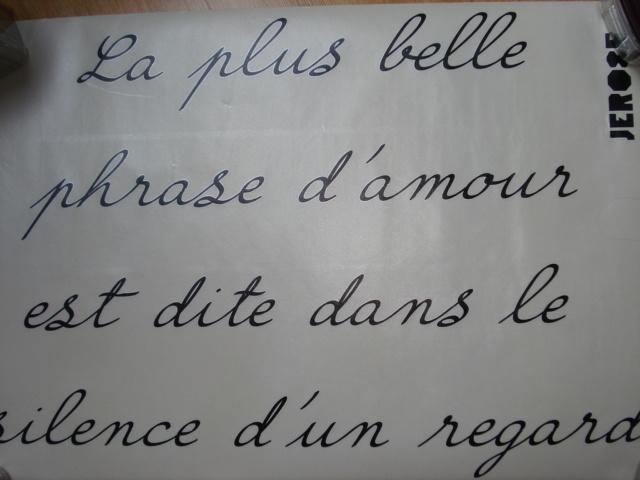 La plus belle
phrase d'amour
est dite dans le
silence d'un regard